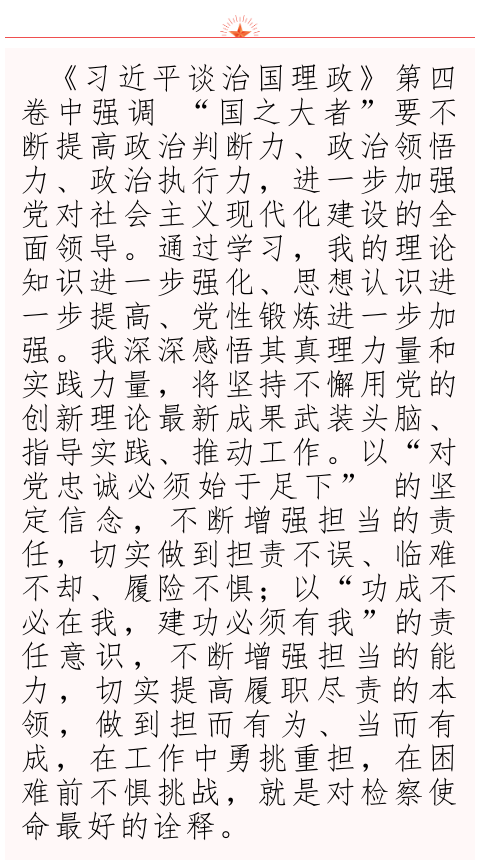 《习近平谈治国理政》第四
卷中强调 “国之大者”要不
断提高政治判断力、政治领悟
力、政治执行力，进一步加强
党对社会主义现代化建设的全
面领导。通过学习，我的理论
知识进一步强化、思想认识进
一步提高、党性锻炼进一步加
强。我深深感悟其真理力量和
实践力量，将坚持不懈用党的
创新理论最新成果武装头脑、
指导实践、推动工作。以“对
党忠诚必须始于足下” 的坚
定信念，不断增强担当的责
任，切实做到担责不误、临难
不却、履险不惧；以“功成不
必在我，建功必须有我”的责
任意识，不断增强担当的能
力，切实提高履职尽责的本
领，做到担而有为、当而有
成，在工作中勇挑重担，在困
难前不惧挑战，就是对检察使
命最好的诠释。